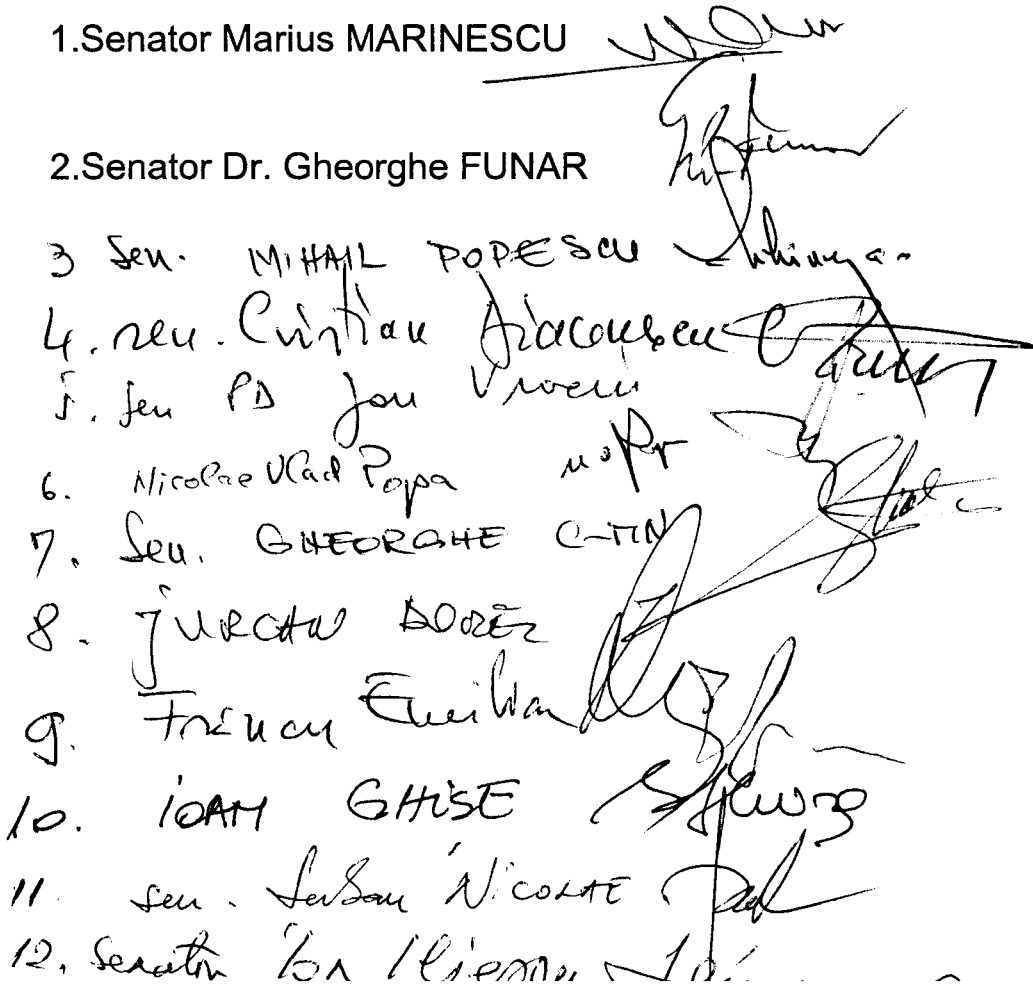 1.Senator Marius MARINESCU
2.Senator Dr. Gheorghe FUNAR
3 Sen. MIHAIL POPESCU
4. sen. Cristian Diaconescu
5. Sen PD Ion Vraciu
6. Nicolae Vlad Popa
7. Sen. GHEORGHE C-TIN
8. JURCAN DOREL
9. Frâncu Emilian
10. IOAN GHISE
11. sen. Serban NICOLAE
12. Senator Ion